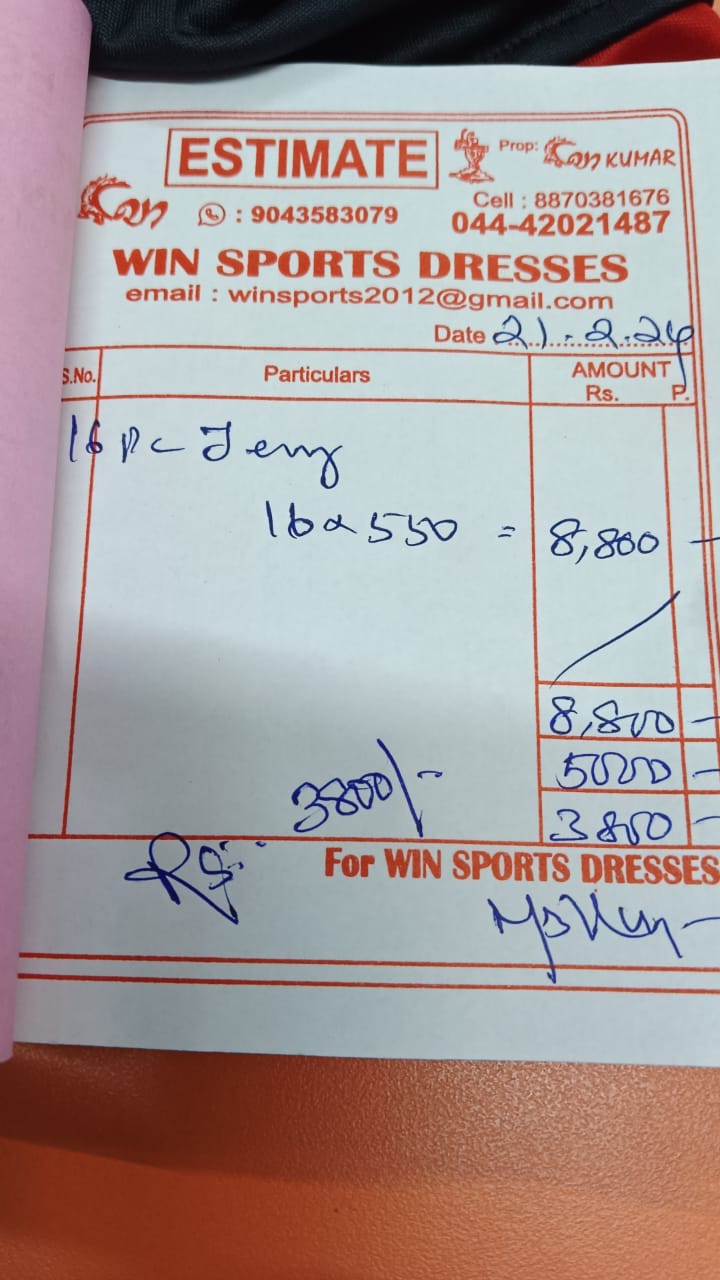 ESTIMATE
Prop: Ean KUMAR
Cell : 8870381676
: 9043583079
044-42021487
WIN SPORTS DRESSES
email : winsports2012@gmail.com
Date 21.2.24
S.No. Particulars AMOUNT
Rs. P.
16 Pc Jerzy
16 x 550 = 8,800 -
8,800 -
5000 -
3800/- 3800 -
For WIN SPORTS DRESSES